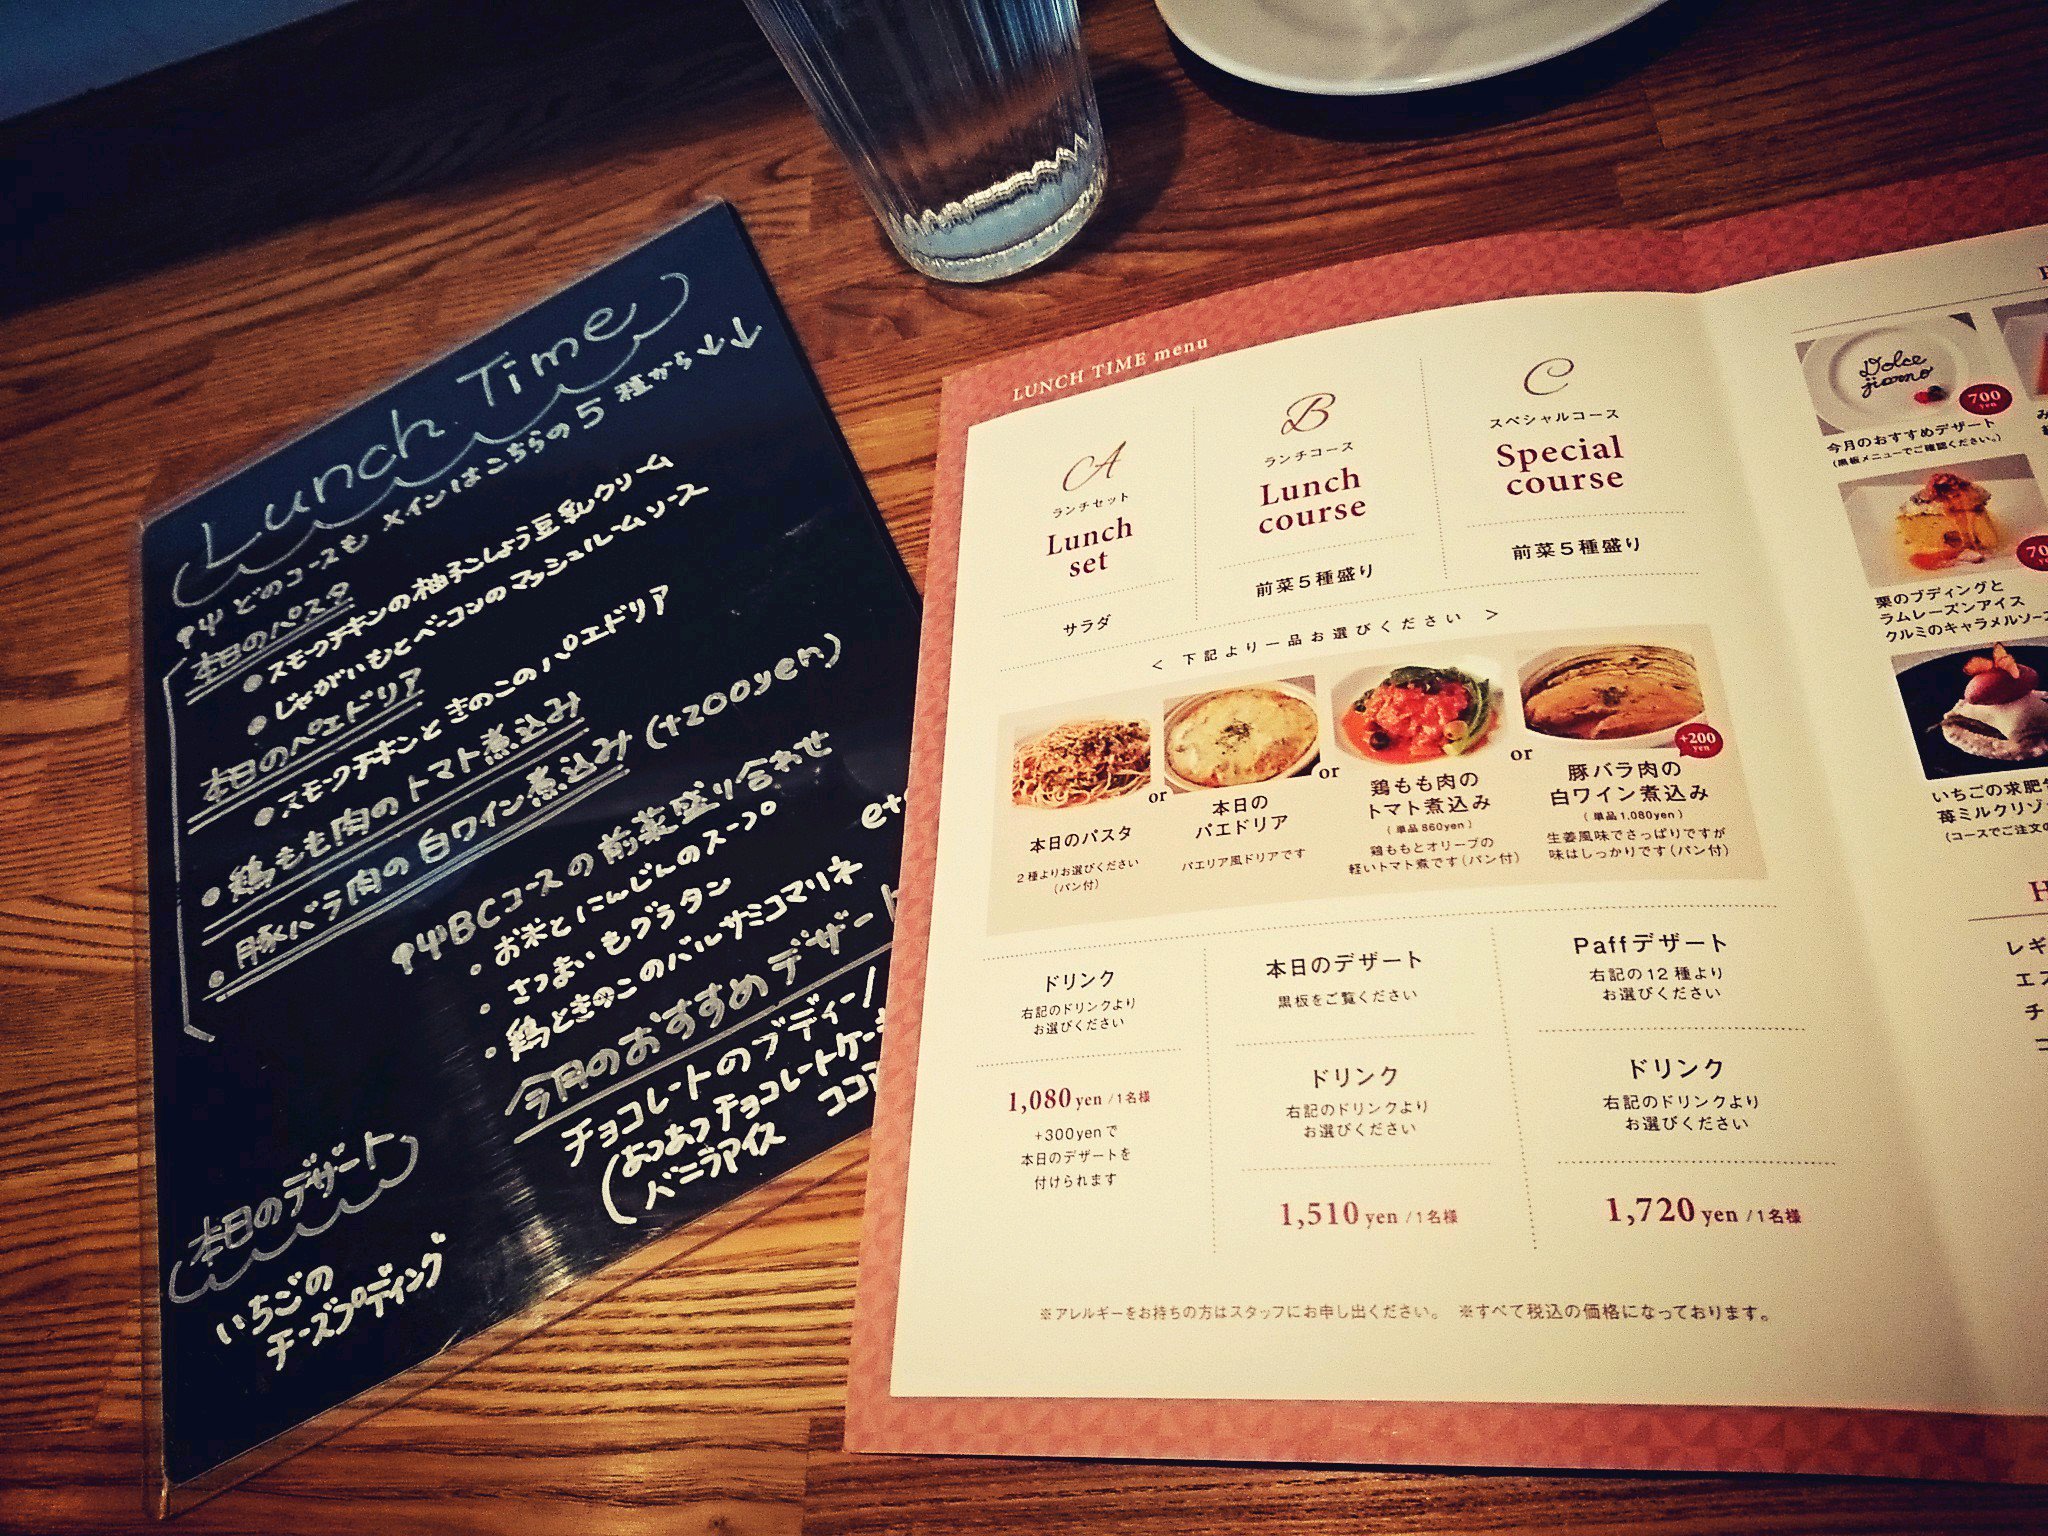 Lunch Time
どのコースも メインはこちらの5種から↓↓
本日のパスタ
●スモークチキンの柚子こしょう豆乳クリーム
●じゃがいもとベーコンのマッシュルームソース
本日のパエドリア
●スモークチキンときのこのパエドリア
●鶏もも肉のトマト煮込み
●豚バラ肉の白ワイン煮込み(+200yen)
BCコースの前菜盛り合わせ
・お米とにんじんのスープ
・さつまいもグラタン
・鶏ときのこのバルサミコマリネ
今月のおすすめデザート
チョコレートのプディ
(あつあつチョコレートケーキ
バニラアイス
ココア
本日のデザート
いちごの
チーズプディング
LUNCH TIME menu
A
ランチセット
Lunch
set
サラダ
B
ランチコース
Lunch
course
前菜5種盛り
C
スペシャルコース
Special
course
前菜5種盛り
< 下記より一品お選びください >
本日のパスタ
2種よりお選びください
(パン付)
or
本日の
パエドリア
パエリア風ドリアです
or
鶏もも肉の
トマト煮込み
(単品860yen)
鶏ももとオリーブの
軽いトマト煮です(パン付)
or
+200
yen
豚バラ肉の
白ワイン煮込み
(単品1,080yen)
生姜風味でさっぱりですが
味はしっかりです(パン付)
ドリンク
右記のドリンクより
お選びください
1,080yen /1名様
+300yenで
本日のデザートを
付けられます
本日のデザート
黒板をご覧ください
ドリンク
右記のドリンクより
お選びください
1,510yen /1名様
Paffデザート
右記の12種より
お選びください
ドリンク
右記のドリンクより
お選びください
1,720yen /1名様
※アレルギーをお持ちの方はスタッフにお申し出ください。 ※すべて税込の価格になっております。
Dolce
700
yen
今月のおすすめデザート
(黒板メニューでご確認ください。)
栗のプディングと
ラムレーズンアイス
クルミのキャラメルソース
いちごの求肥
苺ミルクリゾ
(コースでご注文の
H
レギ
エス
チ